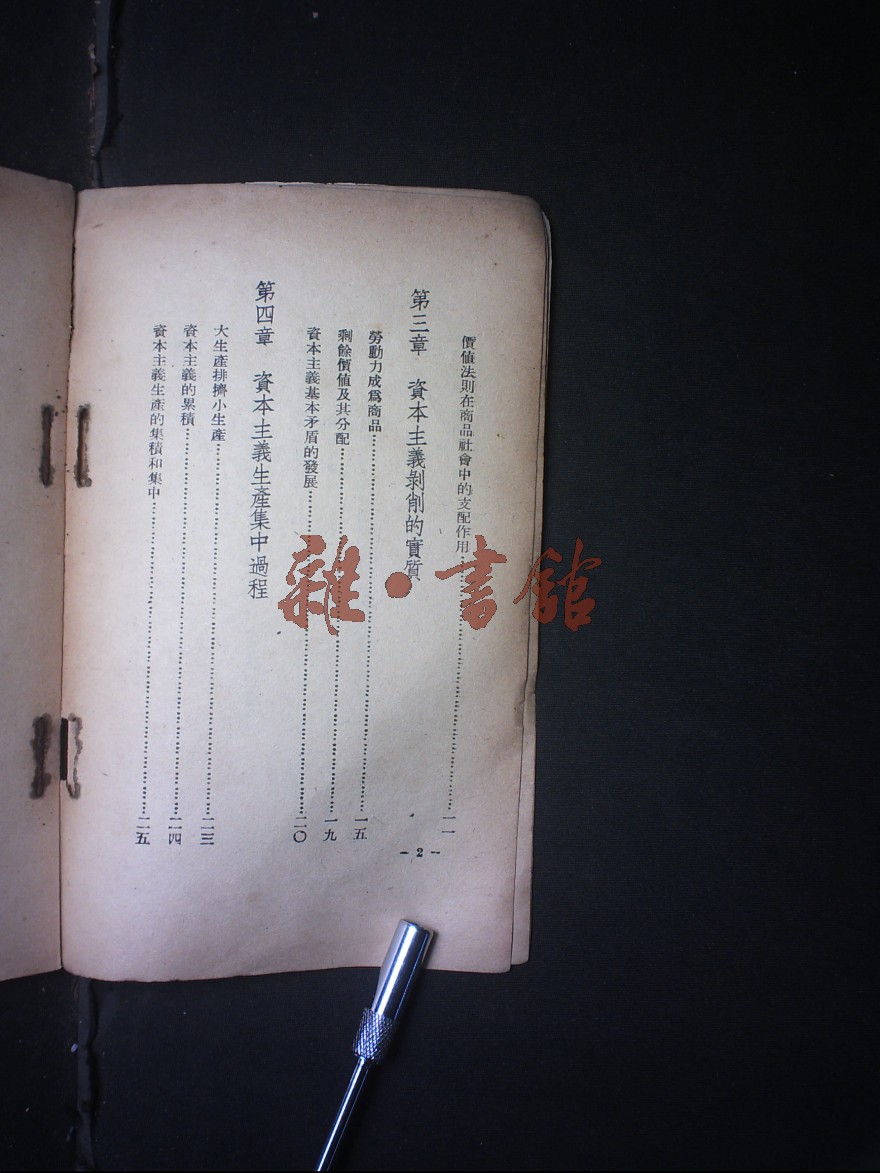 價值法則在商品社會中的支配作用……一一
第三章 資本主義剝削的實質
勞動力成爲商品……一五
剩餘價值及其分配……一九
資本主義基本矛盾的發展……二〇
第四章 資本主義生產集中過程
大生產排擠小生產……二三
資本主義的累積……二四
資本主義生產的集積和集中……二五
- 2 -
雜·書館